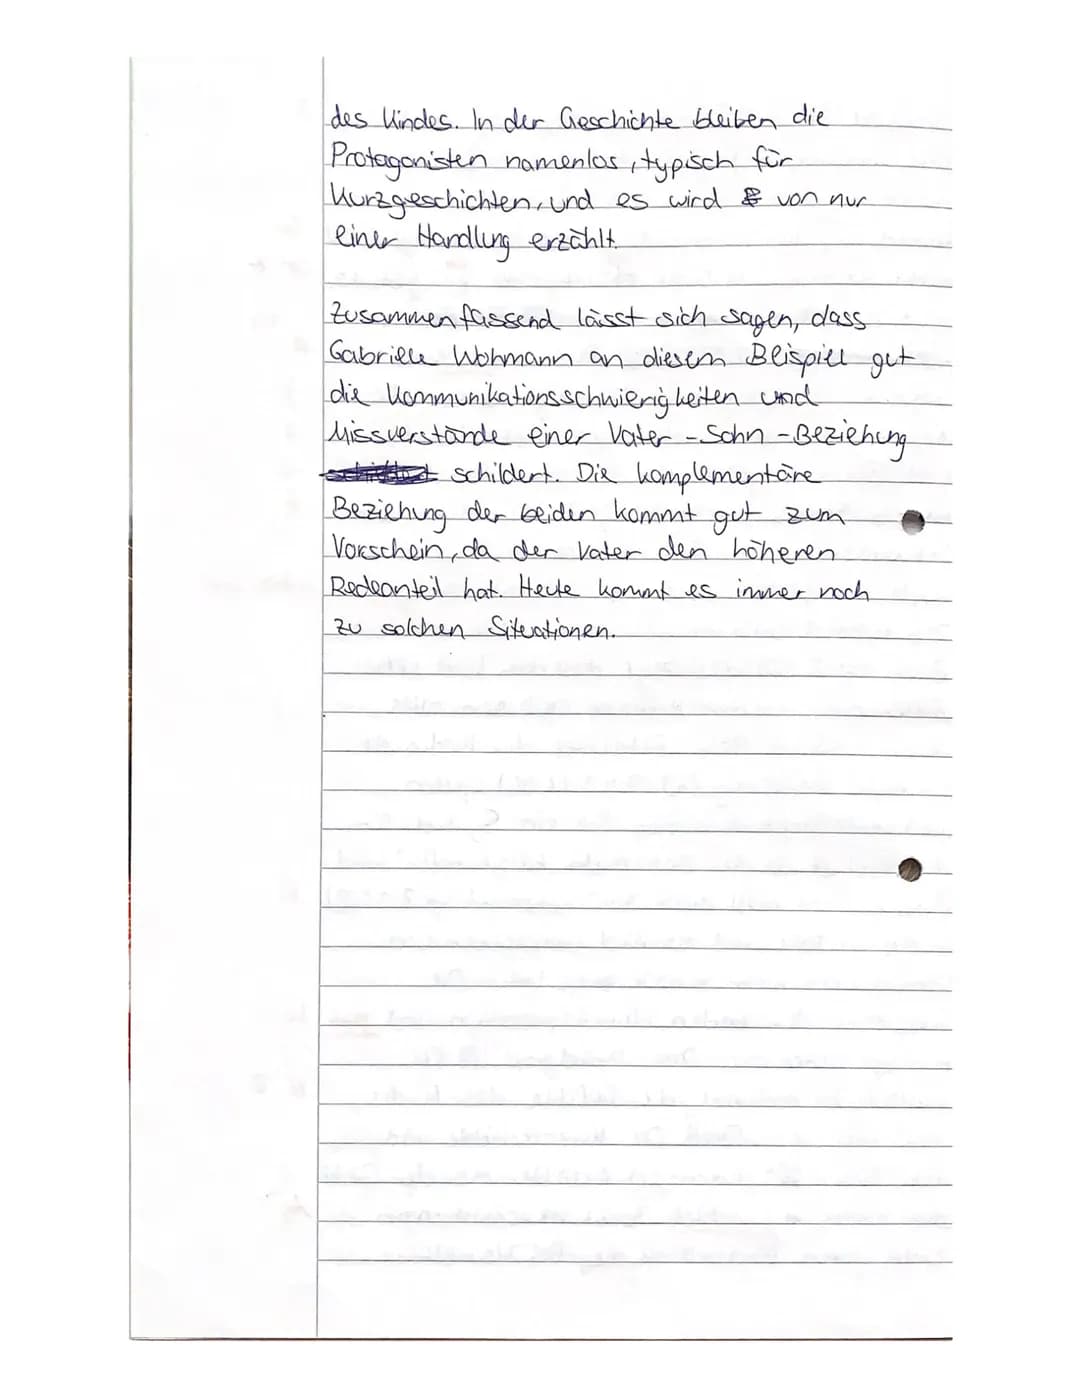 des Kindes. In der Geschichte bleiben die
Protagonisten namenlos, typisch für
Kurzgeschichten, und es wird von nur
einer Handlung erzählt.
Zusammenfassend lässt sich sagen, dass
Gabriele Wohmann an diesem Beispiel gut
die Kommunikationsschwierigkeiten und
Missverstände einer Vater-Sohn-Beziehung
schildert. Die komplementäre
Beziehung der beiden kommt gut zum
Vorschein, da der Vater den höheren
Redeanteil hat. Heute kommt es immer noch
zu solchen Situationen.